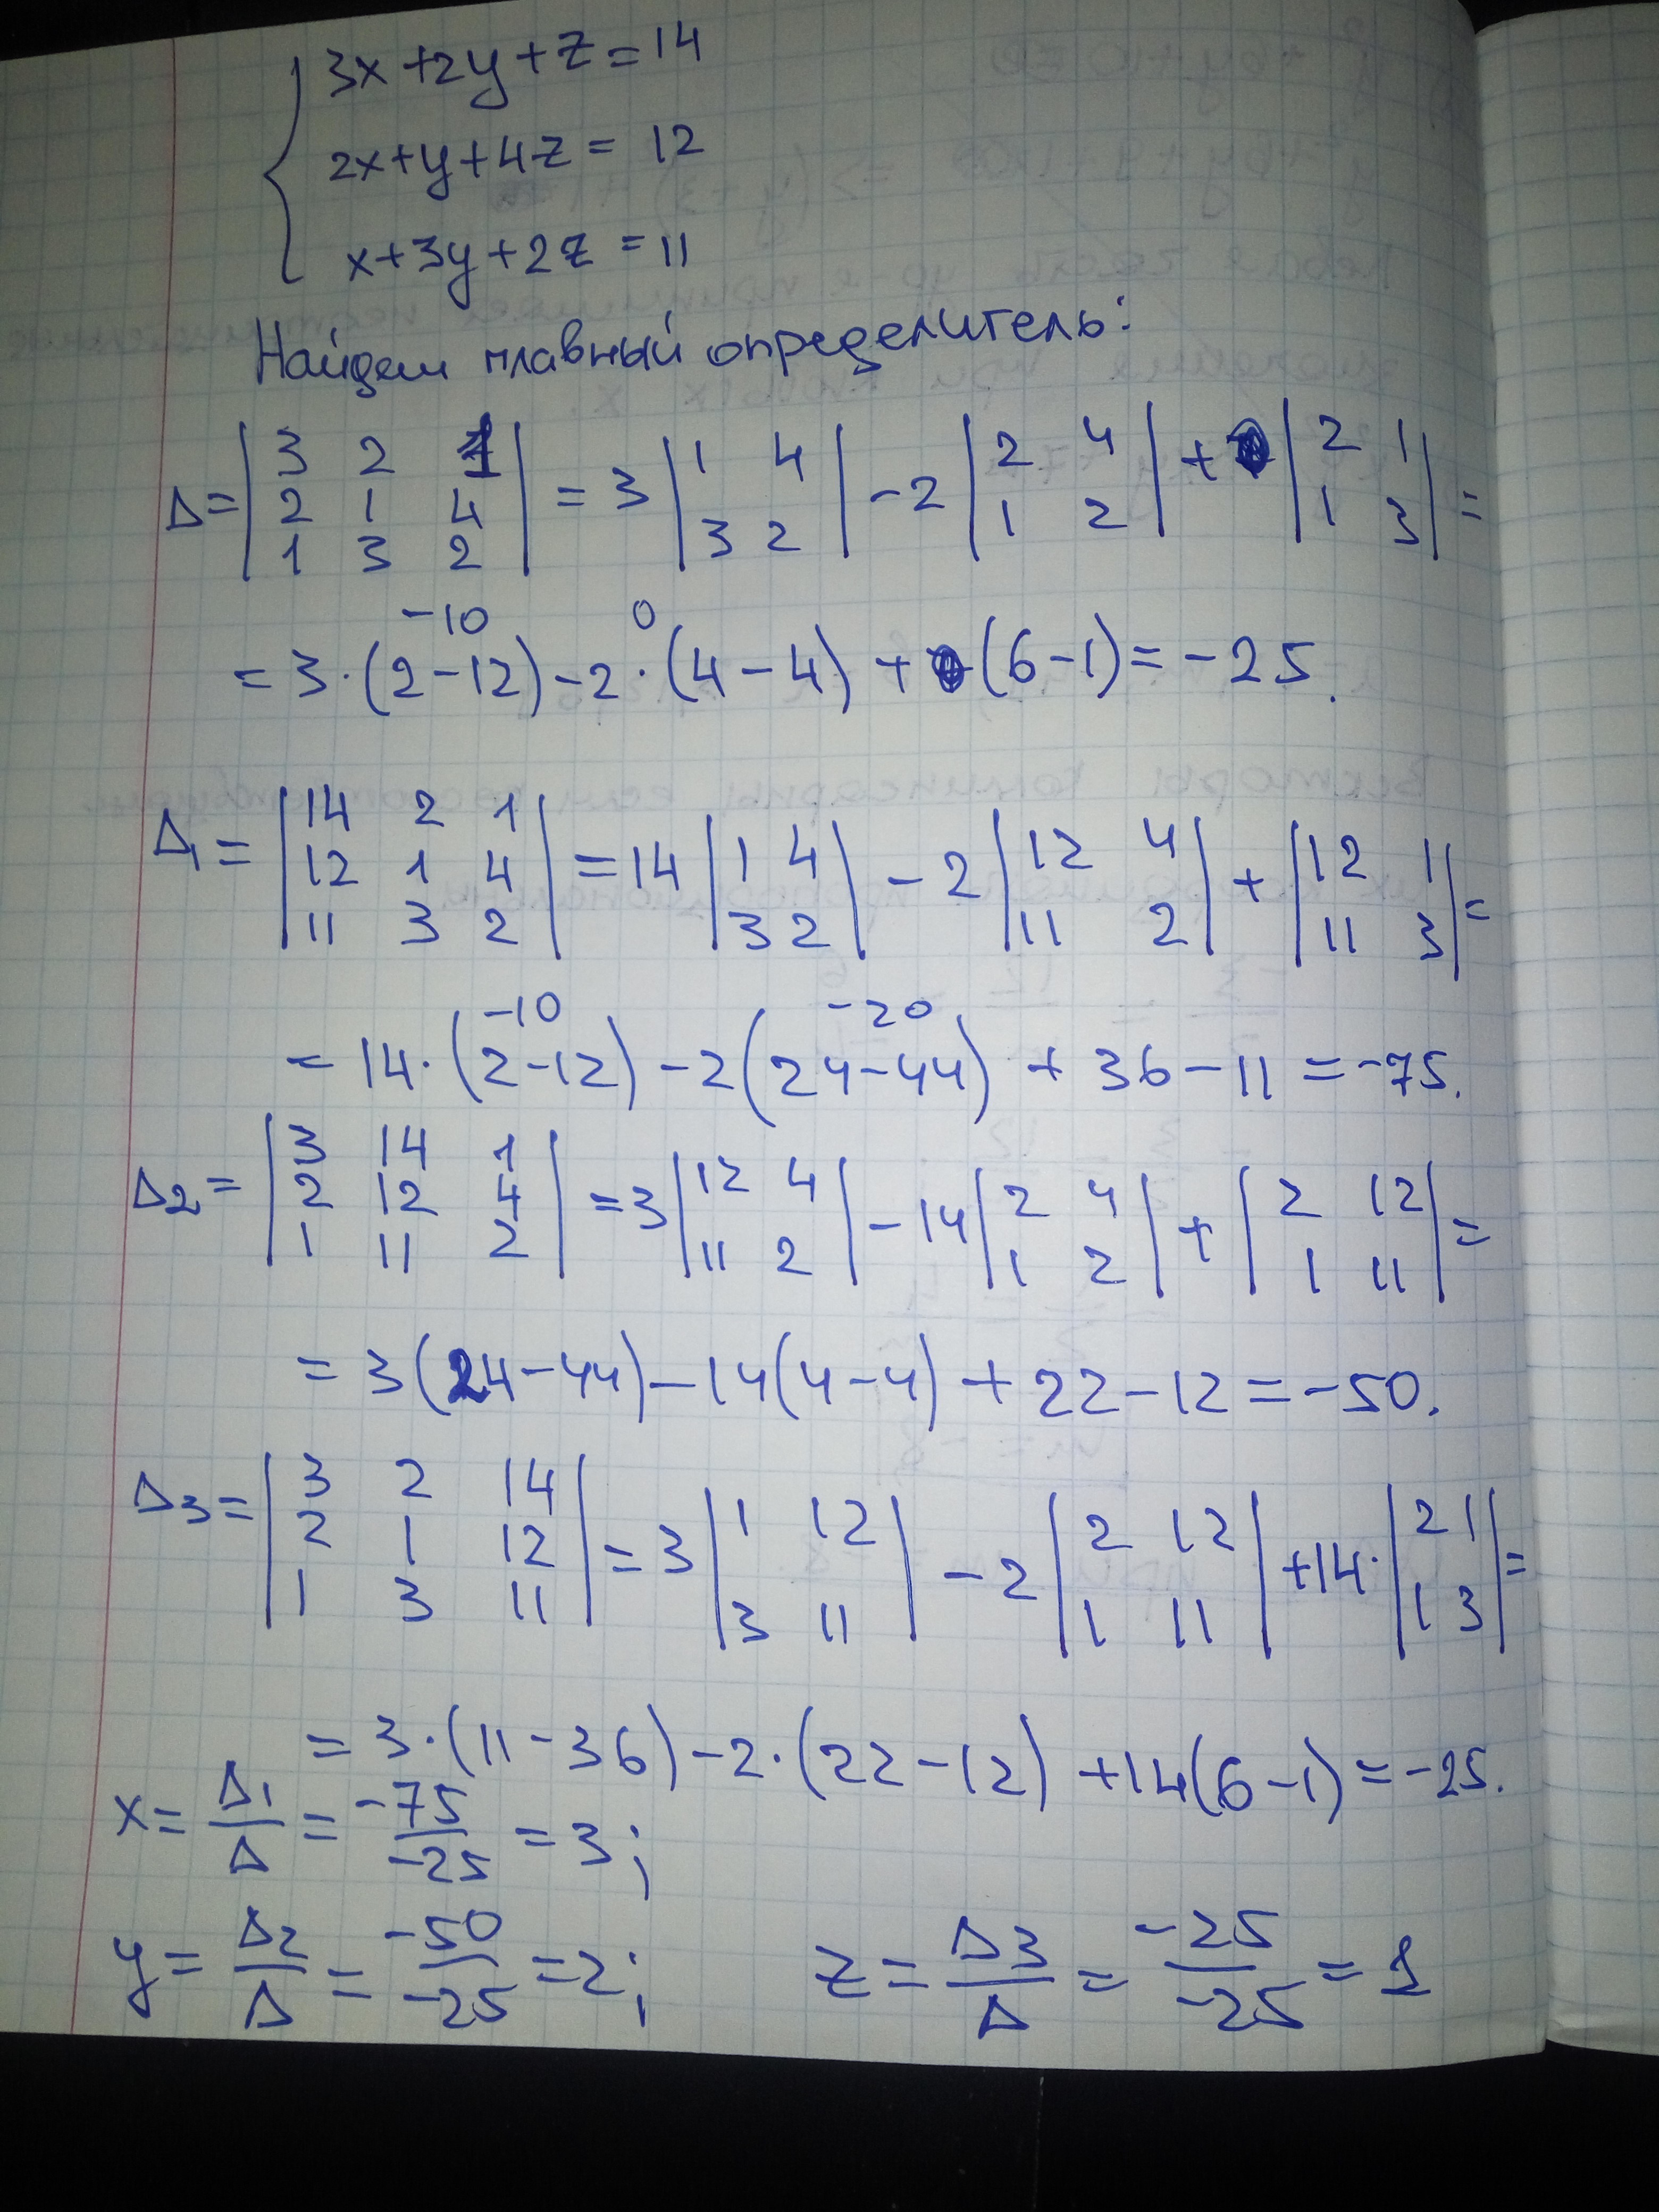 3x+2y+z=14
2x+y+4z=12
x+3y+2z=11
Найдем главный определитель:
Δ=|3 2 1; 2 1 4; 1 3 2|=3|1 4; 3 2|-2|2 4; 1 2|+|2 1; 1 3|=
-10 0
=3·(2-12)-2·(4-4)+(6-1)=-25.
Δ1=|14 2 1; 12 1 4; 11 3 2|=14|1 4; 3 2|-2|12 4; 11 2|+|12 1; 11 3|=
-10 -20
=14·(2-12)-2(24-44)+36-11=-75.
Δ2=|3 14 1; 2 12 4; 1 11 2|=3|12 4; 11 2|-14|2 4; 1 2|+|2 12; 1 11|=
=3(24-44)-14(4-4)+22-12=-50.
Δ3=|3 2 14; 2 1 12; 1 3 11|=3|1 12; 3 11|-2|2 12; 1 11|+14·|2 1; 1 3|=
=3·(11-36)-2·(22-12)+14(6-1)=-25.
x=Δ1/Δ=-75/-25=3;
y=Δ2/Δ=-50/-25=2; z=Δ3/Δ=-25/-25=1